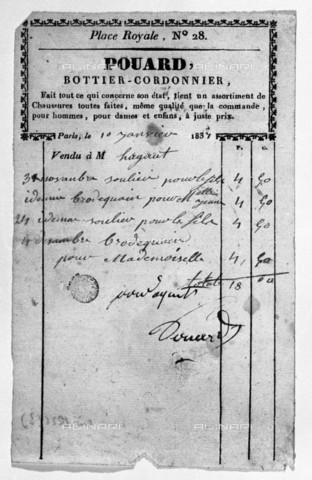 Place Royale, N° 28.
POUARD,
BOTTIER-CORDONNIER,
Fait tout ce qui concerne son état, tient un assortiment de
Chaussures toutes faites, même qualité que la commande,
pour hommes, pour dames et enfans, à juste prix.
Paris, le 10 janvier 1837
F. C.
Vendu à M hagaut
3 novembre soulier pour le fils 4 50
idem brodequain pour 4 50
24 idem soulier pour le fils 4 50
4 brodequain
pour Mademoiselle 4, 50
totale 18 00
pour aquit
Pouard
ALINARI
ALINARI